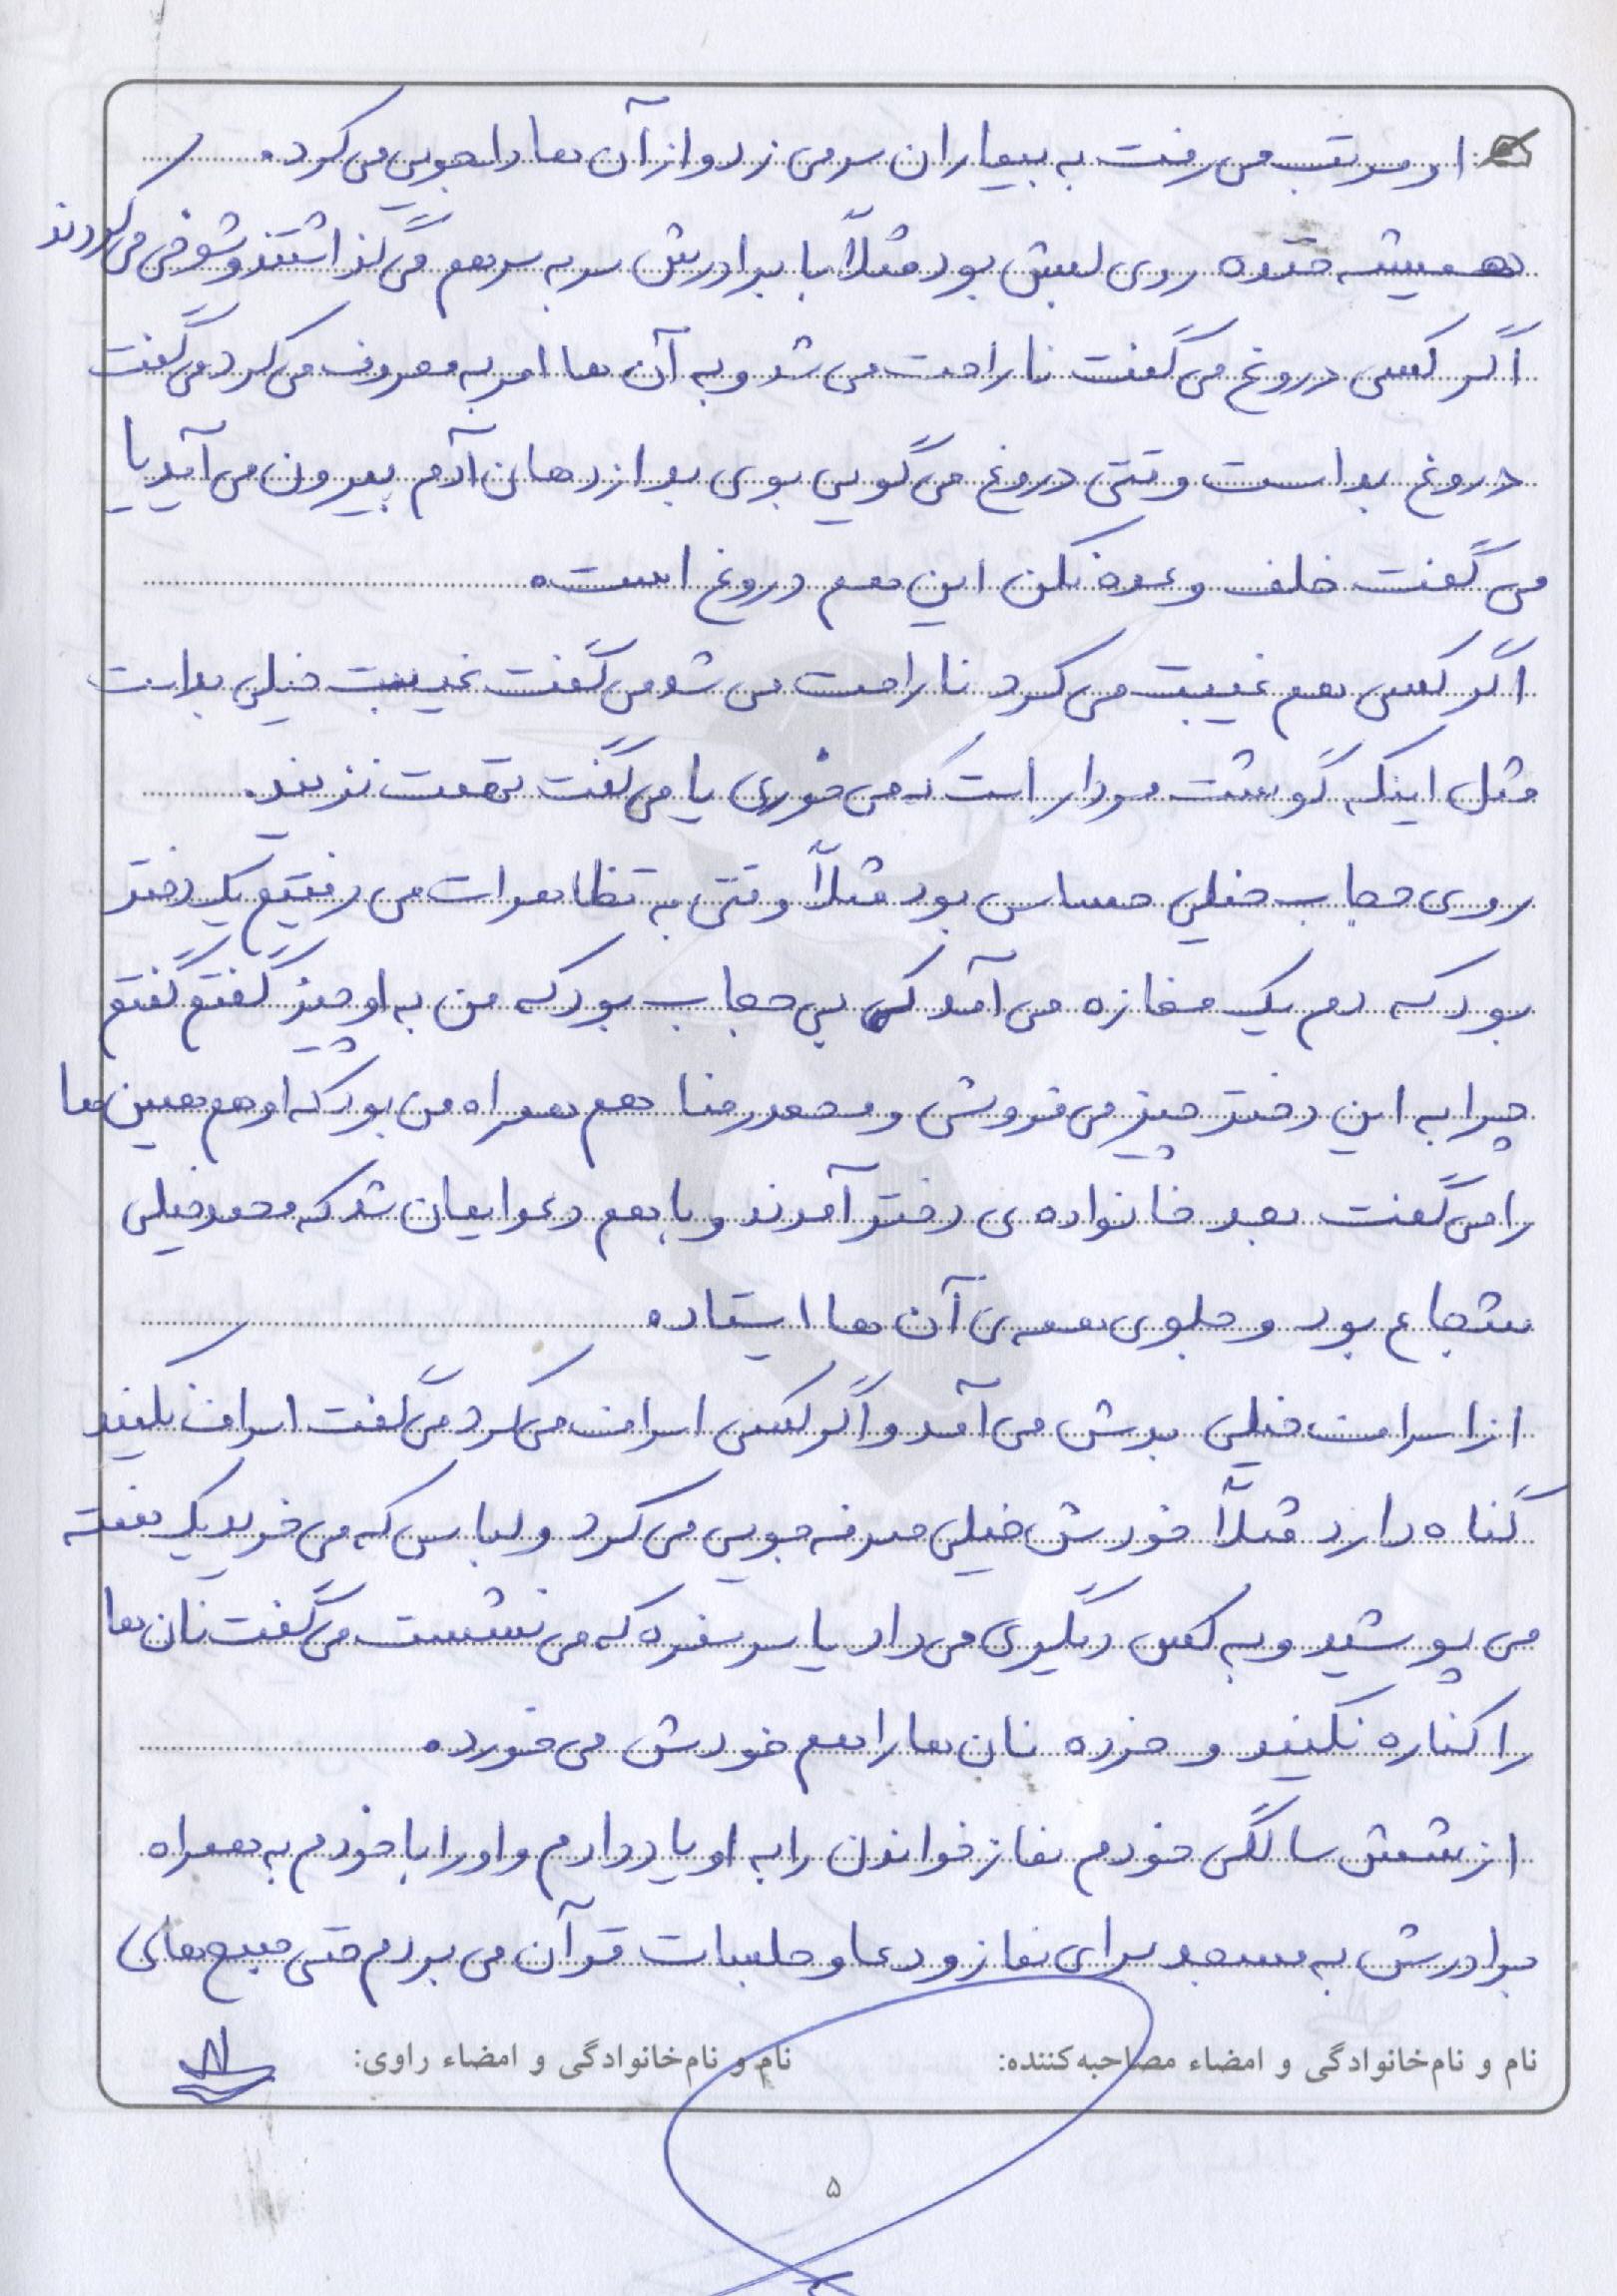 او مرتب می رفت به بیماران سر می زد و از آن ها دلجویی می کرد.
همیشه خنده روی لبش بود مثلاً با برادرش سر به سر هم می گذاشتند و شوخی می کردند
اگر کسی دروغ می گفت ناراحت می شد و به آن ها امر به معروف می کرد می گفت
دروغ بد است وقتی دروغ می گویی بوی بد از دهان آدم بیرون می آید یا
می گفت خلف وعده نکن این هم دروغ است.
اگر کسی هم غیبت می کرد ناراحت می شد می گفت غیبت خیلی بد است
مثل اینکه گوشت مردار است که می خوری یا می گفت تهمت نزنید.
روی حجاب خیلی حساس بود مثلاً وقتی به تظاهرات می رفتیم یک دختر
بود که دم یک مغازه می آمد که بی حجاب بود که من به او چیز گفتم گفتم
چرا به این دختر چیز می فروشی و محمدرضا هم همراه من بود که او هم همین ها
را می گفت بعد خانواده ی دختر آمدند و با هم دعوایمان شد که محمد خیلی
شجاع بود و جلوی همه ی آن ها ایستاد.
از اسراف خیلی بدش می آمد و اگر کسی اسراف می کرد می گفت اسراف نکنید
گناه دارد مثلاً خودش خیلی صرفه جویی می کرد و لباسی که می خرید یک هفته
می پوشید و به کس دیگری می داد یا سر سفره که می نشست می گفت نان ها
را کناره نکنید و خرده نان ها را هم خودش می خورد.
از شش سالگی خودم نماز خواندن را به او یاد دادم و او را با خودم به همراه
برادرش به مسجد برای نماز و دعا و جلسات قرآن می بردم حتی صبح های
نام و نام خانوادگی و امضاء مصاحبه کننده: نام و نام خانوادگی و امضاء راوی:
۵